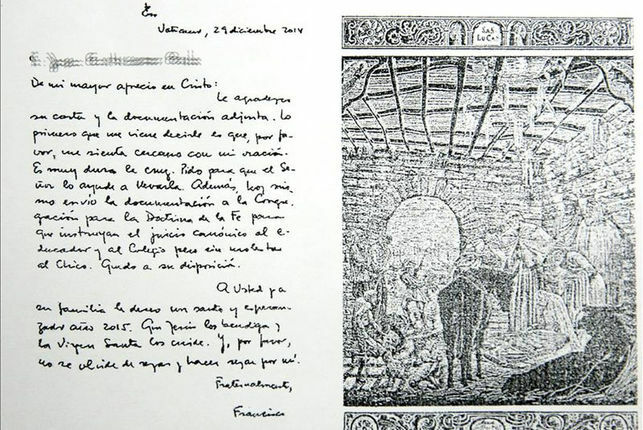 Vaticano, 29 diciembre 2014
De mi mayor aprecio en Cristo:
Le agradezco
su carta y la documentación adjunta. Lo
primero que me viene decirle es que, por fa-
vor, me sienta cercano con mi oración.
Es muy dura la cruz. Pido para que el Se-
ñor lo ayude a llevarla. Además, hoy mis-
mo envío la documentación a la Congre-
gación para la Doctrina de la Fe para
que instruyan el juicio canónico al e-
ducador y al Colegio pero sin molestar
al Chico. Quedo a su disposición.
A Usted y a
su familia le deseo un santo y esperan-
zador año 2015. Que Jesús los bendiga y
la Virgen Santa los cuide. Y, por favor,
no se olvide de rezar y hacer rezar por mí.
Fraternalmente,
Francisco
SAS
LUCAS